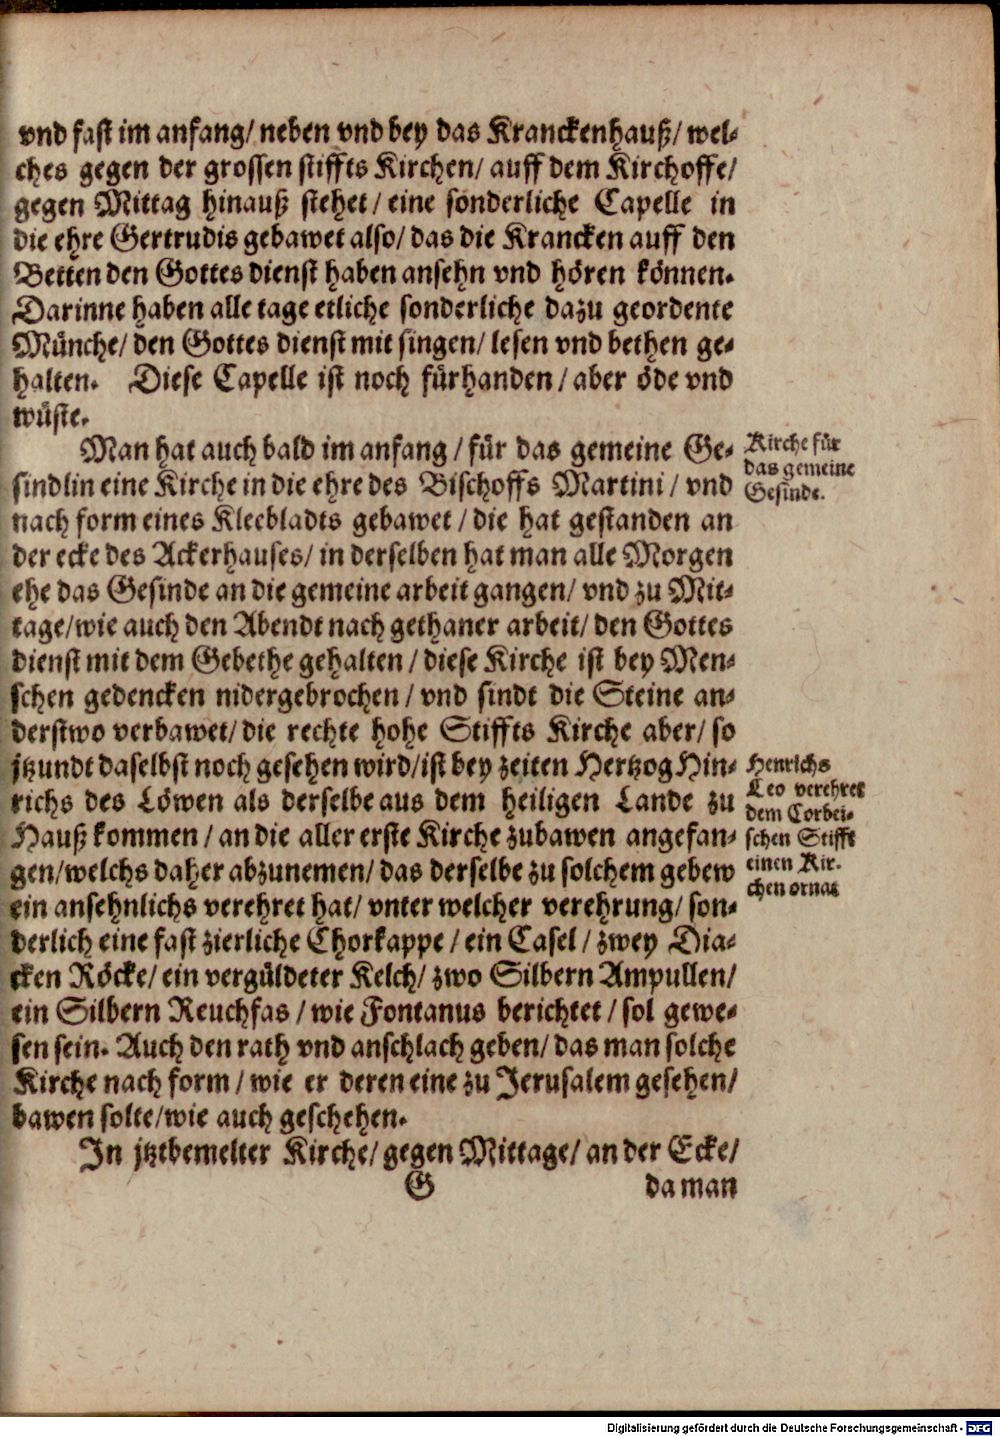 vnd fast im anfang/ neben vnd bey das Kranckenhauß/ wel-
ches gegen der grossen stiffts Kirchen/ auff dem Kirchoffe/
gegen Mittag hinauß stehet/ eine sonderliche Capelle in
die ehre Gertrudis gebawet also/ das die Krancken auff den
Betten den Gottes dienst haben ansehn vnd hören können.
Darinne haben alle tage etliche sonderliche dazu geordente
Münche/ den Gottes dienst mit singen/ lesen vnd bethen ge-
halten. Diese Capelle ist noch fürhanden/ aber öde vnd
wüste.
Man hat auch bald im anfang/ für das gemeine Ge-
sindlin eine Kirche in die ehre des Bischoffs Martini/ vnd
nach form eines Kleebladts gebawet/ die hat gestanden an
der ecke des Ackerhauses/ in derselben hat man alle Morgen
ehe das Gesinde an die gemeine arbeit gangen/ vnd zu Mit-
tage/ wie auch den Abendt nach gethaner arbeit/ den Gottes
dienst mit dem Gebethe gehalten/ diese Kirche ist bey Men-
schen gedencken nidergebrochen/ vnd sindt die Steine an-
derstwo verbawet/ die rechte hohe Stiffts Kirche aber/ so
jtzundt daselbst noch gesehen wird/ ist bey zeiten Hertzog Hin-
richs des Löwen als derselbe aus dem heiligen Lande zu
Hauß kommen/ an die aller erste Kirche zubawen angefan-
gen/ welchs daher abzunemen/ das derselbe zu solchem gebew
ein ansehnlichs verehret hat/ vnter welcher verehrung/ son-
derlich eine fast zierliche Chorkappe/ ein Casel/ zwey Dia-
cken Röcke/ ein vergüldeter Kelch/ zwo Silbern Ampullen/
ein Silbern Reuchfas/ wie Fontanus berichtet/ sol gewe-
sen sein. Auch den rath vnd anschlach geben/ das man solche
Kirche nach form/ wie er deren eine zu Jerusalem gesehen/
bawen solte/ wie auch geschehen.
In jtztbemelter Kirche/ gegen Mittage/ an der Ecke/
G da man
Kirche für
das gemeine
Gesinde.
Henrichs
Leo verehret
dem Corbei-
schen Stifft
einen Kir-
chen ornat
Digitalisierung gefördert durch die Deutsche Forschungsgemeinschaft - DFG